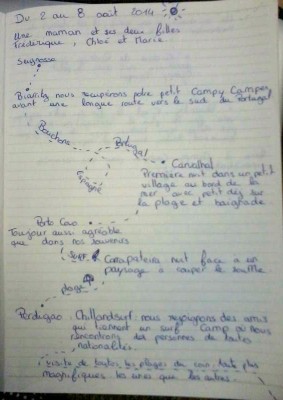 Du 2 au 8 août 2014
Une maman et ses deux filles
Frédérique, Chloé et Marie.
Seignosse
Biarritz, nous récupérons notre petit Campy Camper
avant une longue route vers le sud du Portugal
Bouchons
Portugal
Espagne
Carvalhal
Première nuit dans un petit
village au bord de la
mer avec petit déj sur
la plage et baignade
Porto Covo
Toujours aussi agréable
que dans nos souvenirs
surf
Carrapateira nuit face à un
paysage à couper le souffle
plage
Perdigao: Chillandsurf: nous rejoignons des amis
qui tiennent un surf Camp où nous
rencontrons des personnes de toutes
nationalités.
visite de toutes les plages du coin, toute plus
magnifiques les unes que les autres.